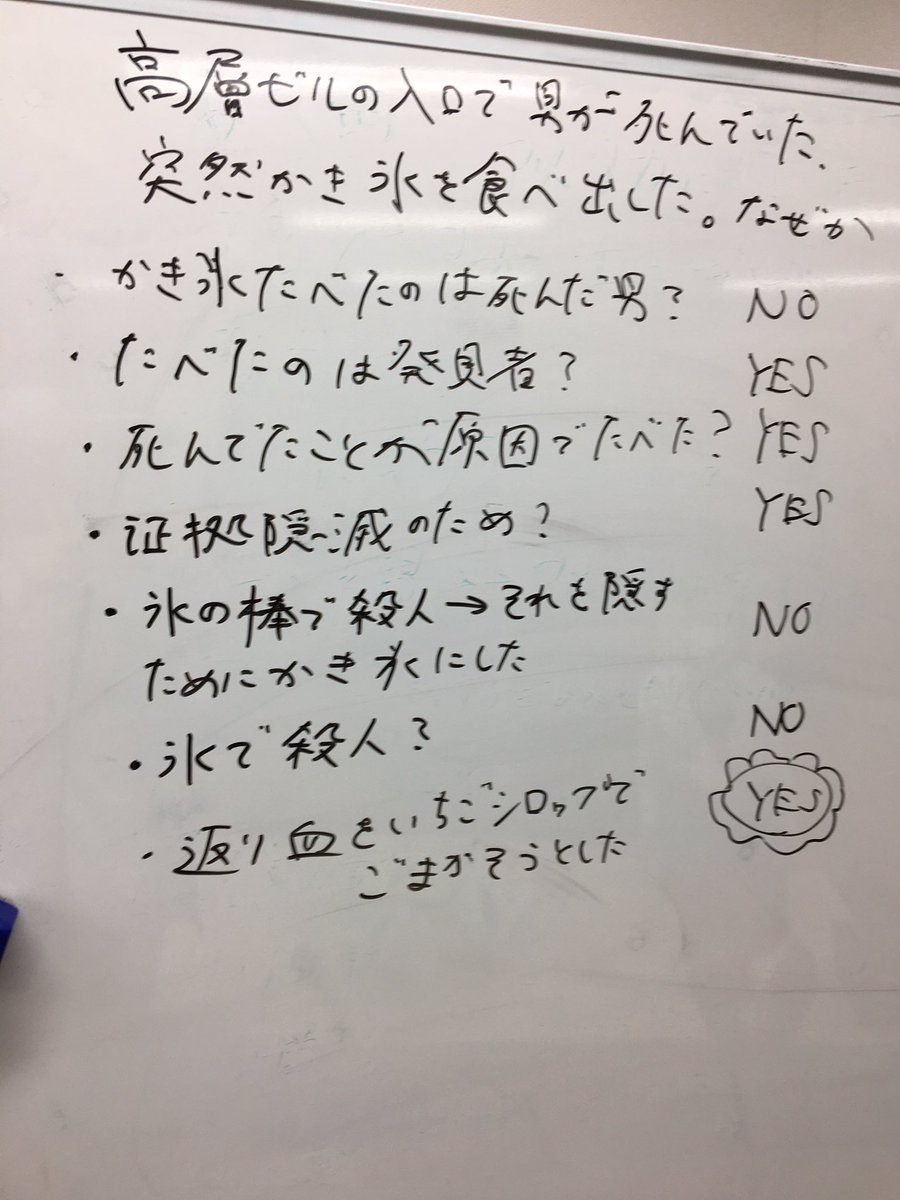 高層ビルの入口で男が死んでいた.
突然かき氷を食べ出した。なぜか
・かき氷たべたのは死んだ男? NO
・たべたのは発見者? YES
・死んでたことが原因でたべた? YES
・証拠隠滅のため? YES
・氷の棒で殺人→それを隠す NO
ためにかき氷にした
・氷で殺人? NO
・返り血をいちごシロップで YES
ごまかそうとした